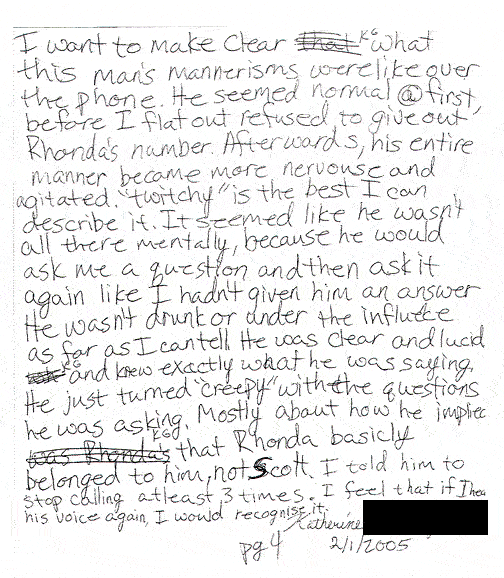 I want to make clear that KG what
this man's mannerisms were like over
the phone. He seemed normal @ first,
before I flat out refused to give out
Rhonda's number. Afterwards, his entire
manner became more nervouse and
agitated. "twitchy" is the best I can
describe it. It seemed like he wasn't
all there mentally, because he would
ask me a question and then ask it
again like I hadn't given him an answer
He wasn't drunk or under the influence
as far as I can tell He was clear and lucid
KG and knew exactly what he was saying.
He just turned "creepy" with the questions
he was asking. Mostly about how he implied
was Rhonda's KG that Rhonda basicly
belonged to him, not Scott. I told him to
stop calling atleast 3 times. I feel that if I hea
his voice again, I would recognise it.
Katherine
pg 4 2/1/2005